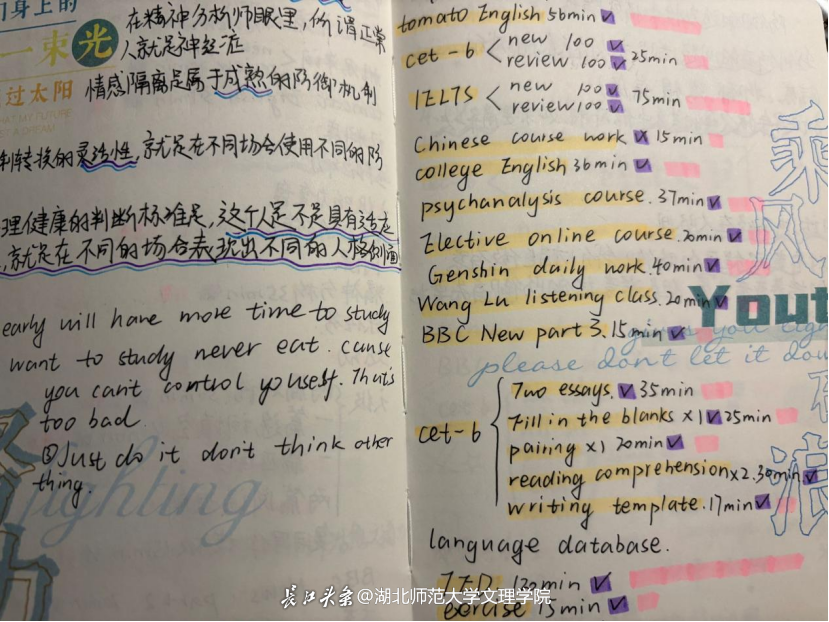 们身上的
一束光
过太阳
在精神分析师眼里,所谓正常
人就是神经症
情感隔离是属于成熟的防御机制
制转换的灵活性,就是在不同场合使用不同的防
理健康的判断标准是,这个人是不是具有适应
,就是在不同的场合表现出不同的人格侧面
early will have more time to study
want to study never eat. cause
you can't control youself. That's
too bad.
②Just do it don't think other
thing.
fighting
tomato English 56min
cet-6 < new 100
review 100 25min
IELTS < new 100
review 100 75min
Chinese course work × 15min
college English 36min
psychanalysis course. 37min
Elective online course. 20min
Genshin daily work. 40min
Wang Lu listening class. 20min
BBC New part 3. 15min
Yout
please don't let it dow
乘风
浪
cet-6
Two essays. 35min
Fill in the blanks ×1 25min
pairing ×1 20min
reading comprehension ×2. 30min
writing template. 17min
language database.
TED 120min
exercise 15min
长江头条 @湖北师范大学文理学院